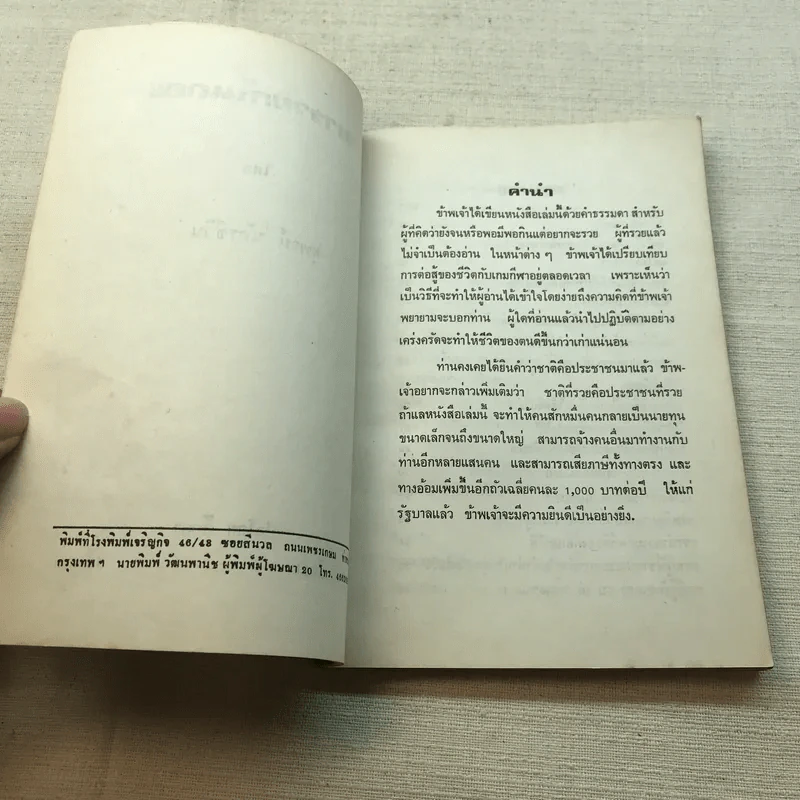 พิมพ์ที่โรงพิมพ์เจริญกิจ 46/48 ซอยสีนวล ถนนเพชรเกษม
กรุงเทพฯ นายพิมพ์ วัฒนพานิช ผู้พิมพ์ผู้โฆษณา 20 โทร.
คำนำ
ข้าพเจ้าได้เขียนหนังสือเล่มนี้ด้วยคำธรรมดา สำหรับ
ผู้ที่คิดว่ายังจนหรือพอมีพอกินแต่อยากจะรวย ผู้ที่รวยแล้ว
ไม่จำเป็นต้องอ่าน ในหน้าต่าง ๆ ข้าพเจ้าได้เปรียบเทียบ
การต่อสู้ของชีวิตกับเกมกีฬาอยู่ตลอดเวลา เพราะเห็นว่า
เป็นวิธีที่จะทำให้ผู้อ่านได้เข้าใจโดยง่ายถึงความคิดที่ข้าพเจ้า
พยายามจะบอกท่าน ผู้ใดที่อ่านแล้วนำไปปฏิบัติตามอย่าง
เคร่งครัดจะทำให้ชีวิตของตนดีขึ้นกว่าเก่าแน่นอน
ท่านคงเคยได้ยินคำว่าชาติคือประชาชนมาแล้ว ข้าพ-
เจ้าอยากจะกล่าวเพิ่มเติมว่า ชาติที่รวยคือประชาชนที่รวย
ถ้าแลหนังสือเล่มนี้ จะทำให้คนสักหมื่นคนกลายเป็นนายทุน
ขนาดเล็กจนถึงขนาดใหญ่ สามารถจ้างคนอื่นมาทำงานกับ
ท่านอีกหลายแสนคน และสามารถเสียภาษีทั้งทางตรง และ
ทางอ้อมเพิ่มขึ้นอีกถัวเฉลี่ยคนละ 1,000 บาทต่อปี ให้แก่
รัฐบาลแล้ว ข้าพเจ้าจะมีความยินดีเป็นอย่างยิ่ง.